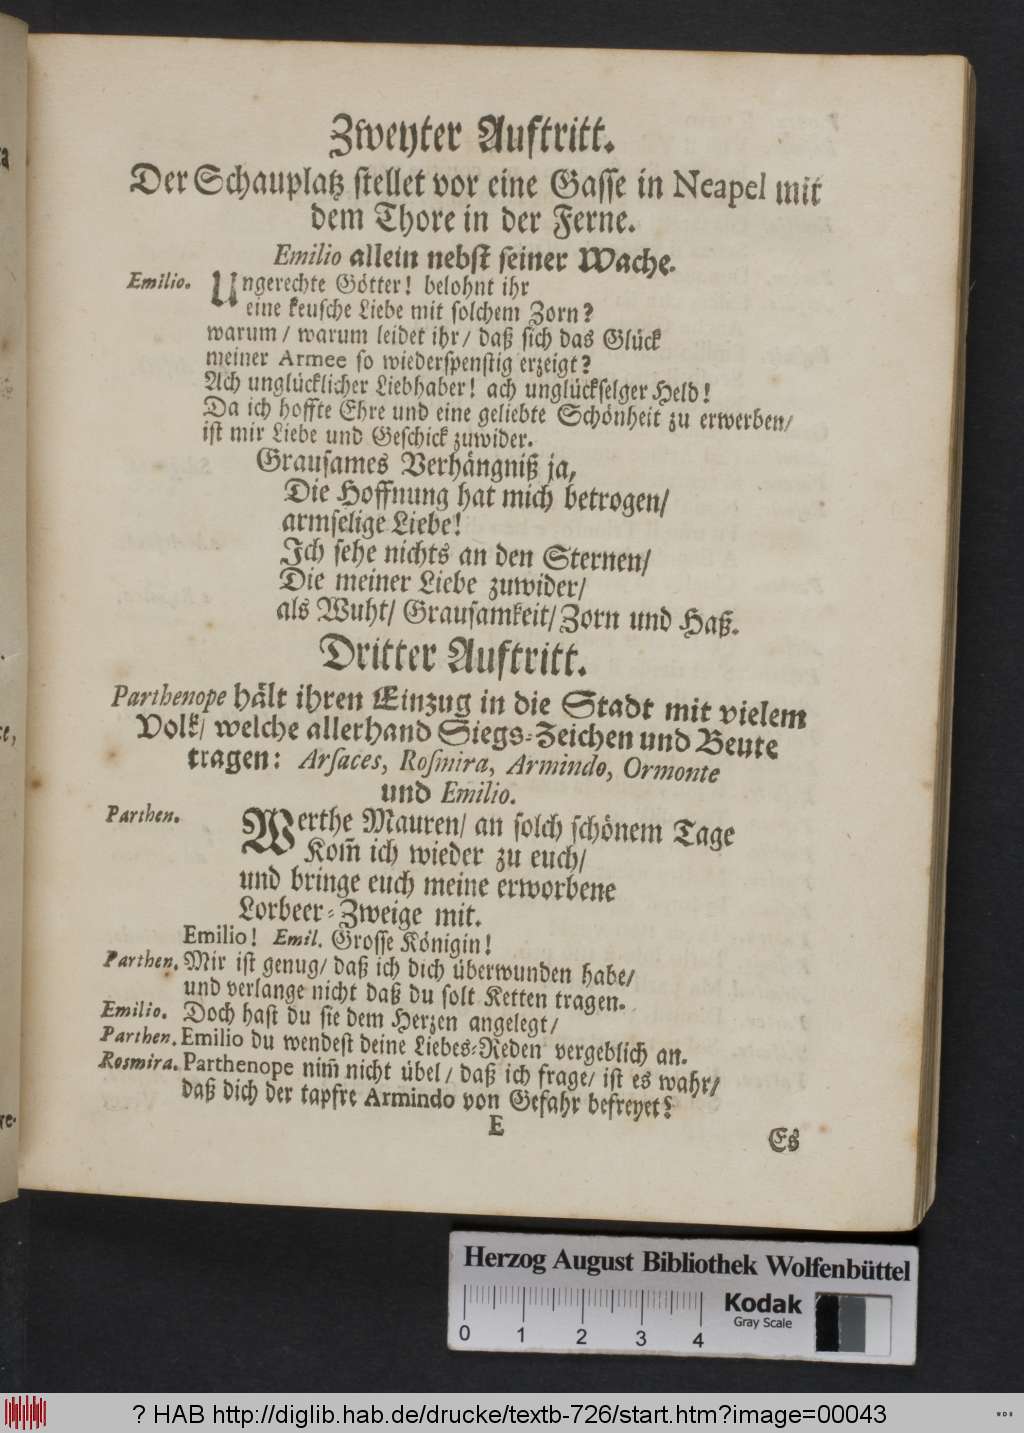 Zweyter Auftritt.
Der Schauplatz stellet vor eine Gasse in Neapel mit
dem Thore in der Ferne.
Emilio allein nebst seiner Wache.
Emilio. Ungerechte Götter! belohnt ihr
eine keusche Liebe mit solchem Zorn?
warum/ warum leidet ihr/ daß sich das Glück
meiner Armee so wiederspenstig erzeigt?
Ach unglücklicher Liebhaber! ach unglückselger Held!
Da ich hoffte Ehre und eine geliebte Schönheit zu erwerben/
ist mir Liebe und Geschick zuwider.
Grausames Verhängniß ja,
Die Hoffnung hat mich betrogen/
armselige Liebe!
Ich sehe nichts an den Sternen/
Die meiner Liebe zuwider/
als Wuht/ Grausamkeit/ Zorn und Haß.
Dritter Auftritt.
Parthenope hält ihren Einzug in die Stadt mit vielem
Volk/ welche allerhand Siegs-Zeichen und Beute
tragen: Arsaces, Rosmira, Armindo, Ormonte
und Emilio.
Parthen. Werthe Mauren/ an solch schönem Tage
Kom̃ ich wieder zu euch/
und bringe euch meine erworbene
Lorbeer-Zweige mit.
Emilio! Emil. Grosse Königin!
Parthen. Mir ist genug/ daß ich dich überwunden habe/
und verlange nicht daß du solt Ketten tragen.
Emilio. Doch hast du sie dem Herzen angelegt/
Parthen. Emilio du wendest deine Liebes-Reden vergeblich an.
Rosmira. Parthenope nim̃ nicht übel/ daß ich frage/ ist es wahr/
daß dich der tapfre Armindo von Gefahr befreyet?
E
Es
Herzog August Bibliothek Wolfenbüttel
0 1 2 3 4
Kodak
Gray Scale
? HAB http://diglib.hab.de/drucke/textb-726/start.htm?image=00043